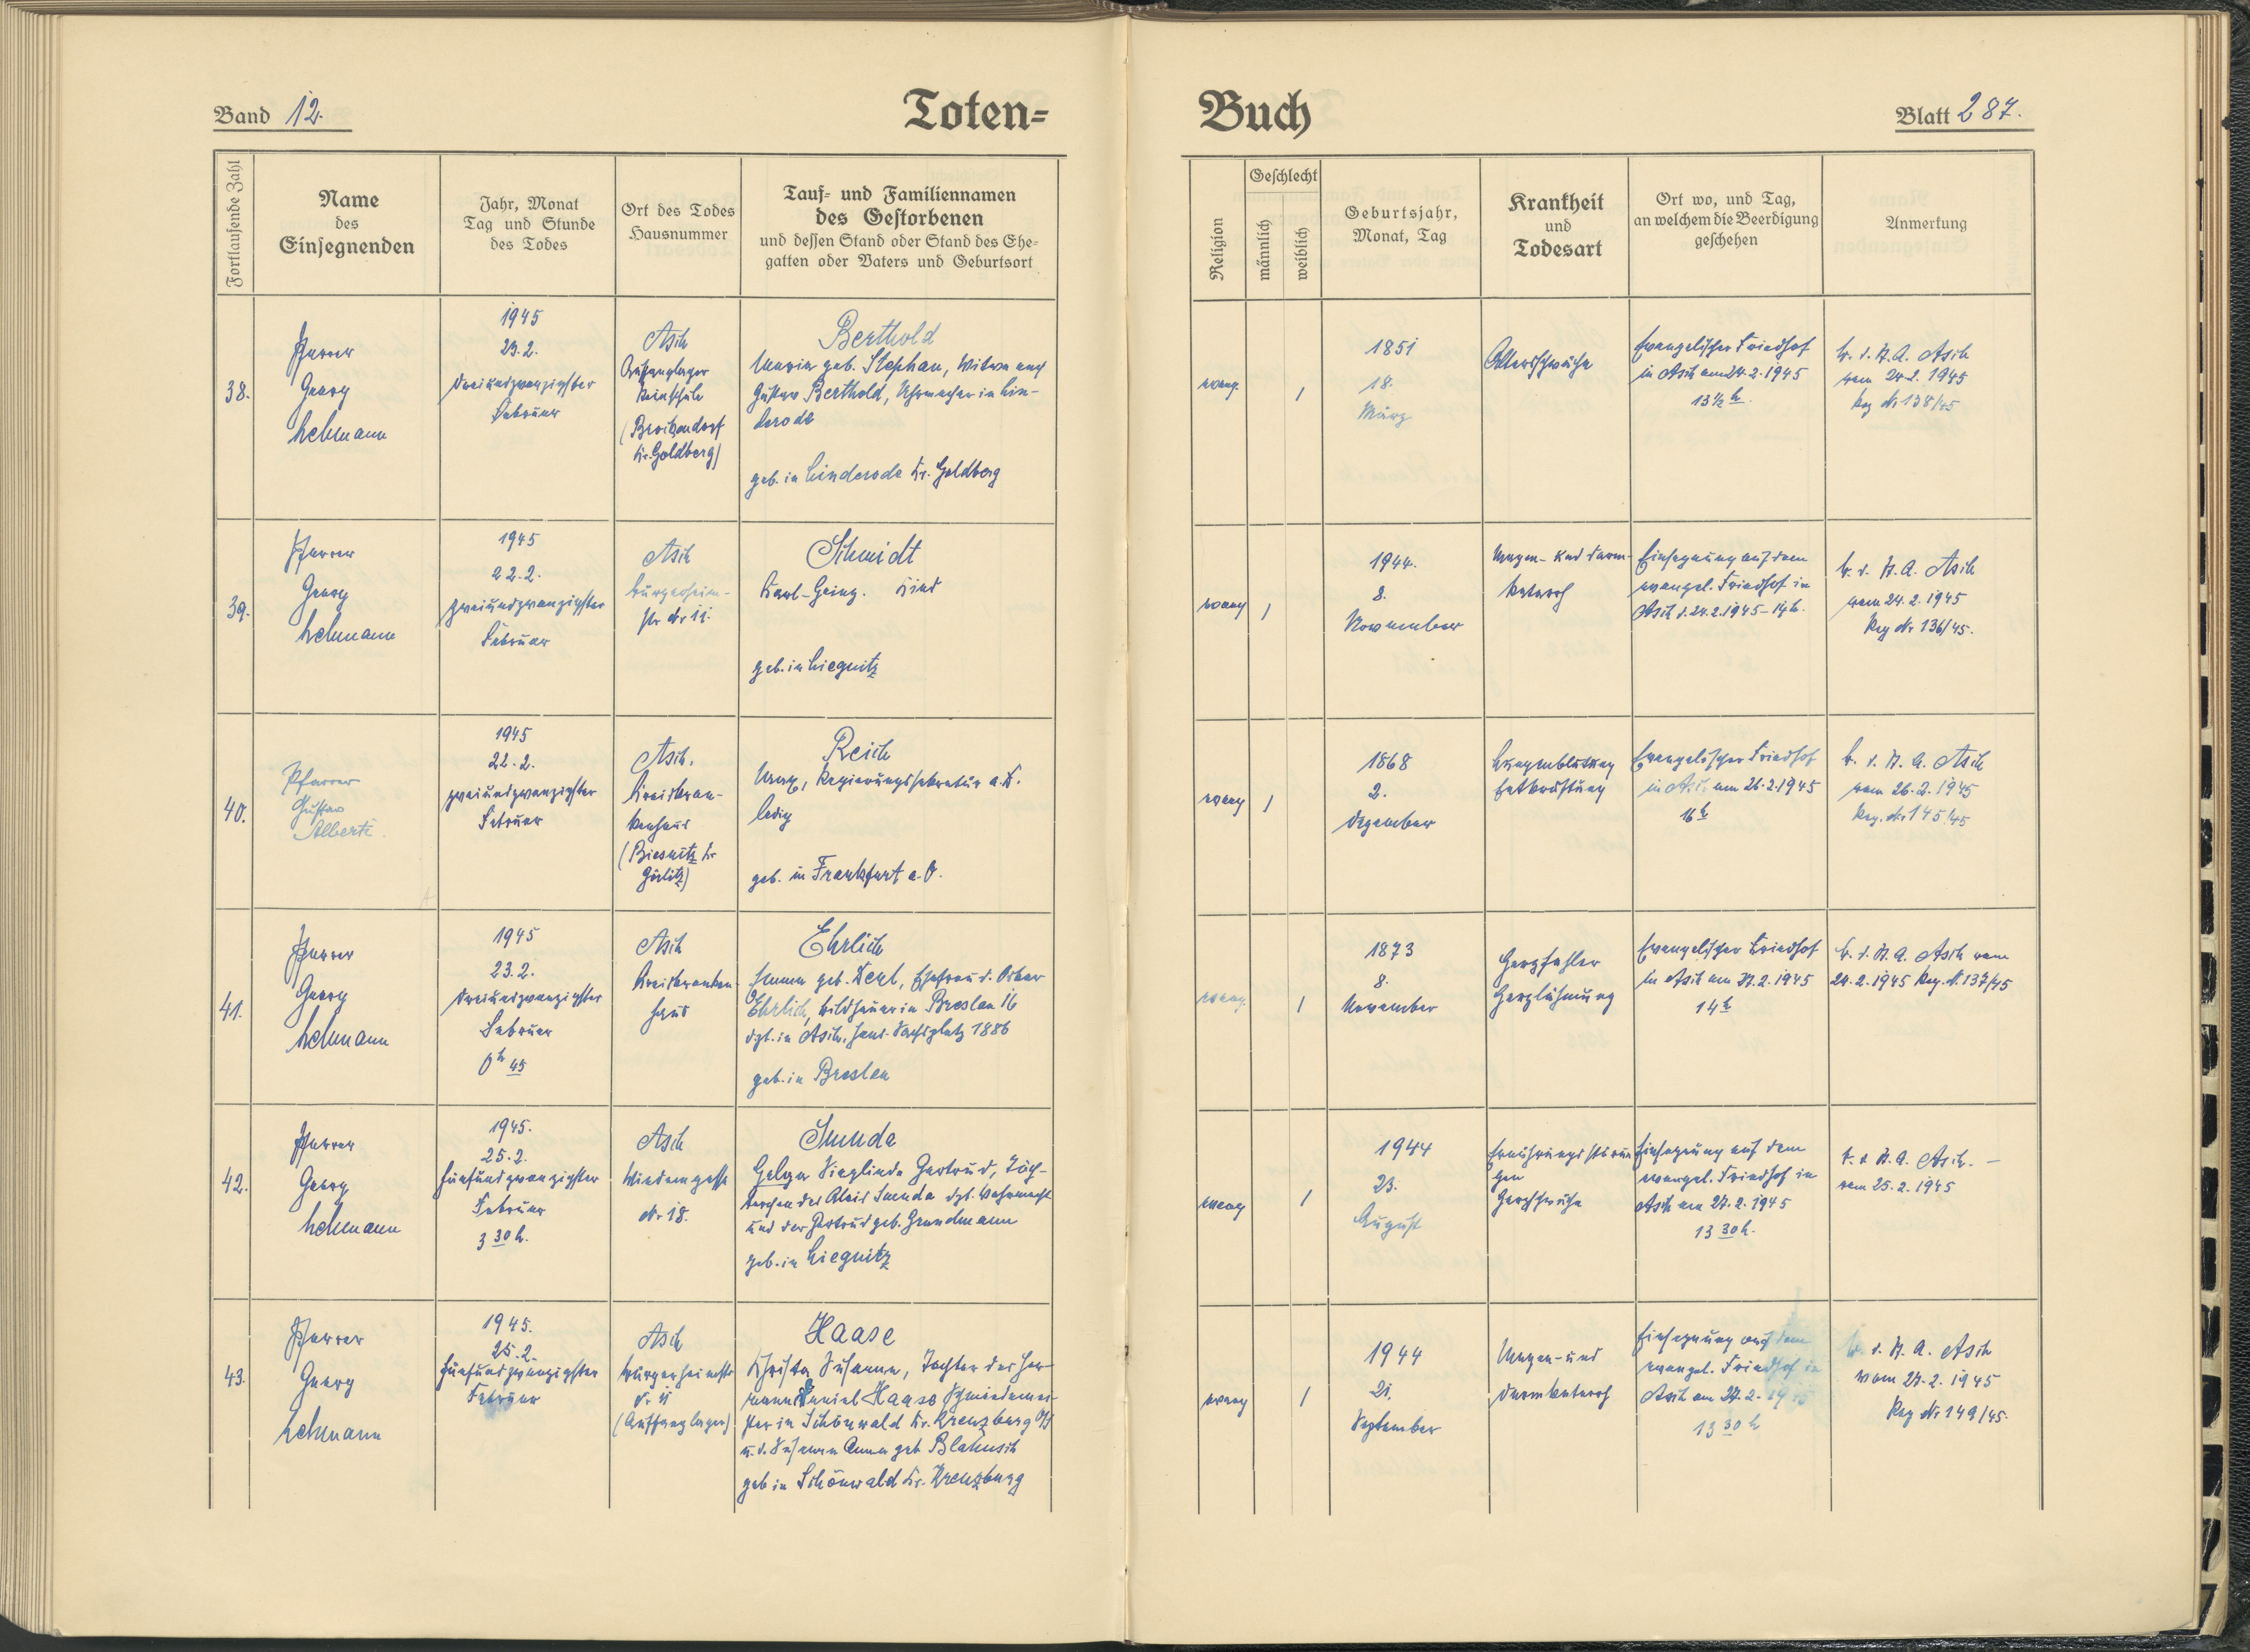 Band 12.
Toten=
Fortlaufende Zahl
Name
des
Einsegnenden
Jahr, Monat
Tag und Stunde
des Todes
Ort des Todes
Hausnummer
Tauf= und Familiennamen
des Gestorbenen
und dessen Stand oder Stand des Ehe=
gatten oder Vaters und Geburtsort
38.
Pfarrer
Georg
Lehmann
1945
23.2.
dreiundzwanzigster
Februar
Asch
Auffanglager
(
Kr. Goldberg)
Berthold
Maria geb. Stephan, Witwe nach
Gustav Berthold, Uhrmacher in Lin-
derode
geb. in Linderode Kr. Goldberg
39.
Pfarrer
Georg
Lehmann
1945
22.2.
zweiundzwanzigster
Februar
Asch
Bürgerheim-
str Nr 11.
Schmidt
Karl-Heinz. Kind
geb. in Liegnitz
40.
Pfarrer
Gustav
Alberti
1945
22.2.
zweiundzwanzigster
Februar
Asch.
Kreiskran-
kenhaus
(Biesnitz Kr
Görlitz)
Reich
Regierungssekretär a.D.
ledig
geb. in Frankfurt a. O.
41.
Pfarrer
Georg
Lehmann
1945
23.2.
dreiundzwanzigster
Februar
0 h 45
Asch
Kreiskranken-
haus
Ehrlich
Emma geb. Ehefrau d. Oskar
Ehrlich, Bildhauer in Breslau 16
dzt. in Asch, Hans-Sachsplatz 1886
geb. in Breslau
42.
Pfarrer
Georg
Lehmann
1945.
25.2.
fünfundzwanzigster
Februar
3 30 h.
Asch
Nr 18.
Smuda
Helga Sieglinde Gertrud, Töch-
terchen des Alois Smuda dzt. Wehrmacht
und der Gertrud geb. Grundmann
geb. in Liegnitz
43.
Pfarrer
Georg
Lehmann
1945.
25.2.
fünfundzwanzigster
Februar
Asch
Bürgerheimstr
Nr 11
(Auffanglager)
Haase
Christa Susanna, Tochter des Her-
mann Daniel Haase Schmiedemei-
ster in Schönwald Kr. Kreuzburg O/S
u. d. Susanna Anna geb
geb in Schönwald Kr. Kreuzburg
Buch
Blatt 287.
Religion
Geschlecht
männlich
weiblich
Geburtsjahr,
Monat, Tag
Krankheit
und
Todesart
Ort wo, und Tag,
an welchem die Beerdigung
geschehen
Anmerkung
evang.
1
1851
18.
März
Altersschwäche
Evangelischer Friedhof
in Asch am 24.2.1945
13 1/2 h.
B. d. St. A. Asch
vom 24.2.1945
Reg Nr 138/45
evang
1
1944.
8.
November
Magen- und Darm-
katarrh
Einsegnung auf dem
evangel. Friedhof in
Asch d. 24.2.1945 - 14 h.
B. d. St. A. Asch
vom 24.2.1945
Reg Nr 136/45.
evang
1
1868
2.
Dezember
Lungenblutung
Entkräftung
Evangelischer Friedhof
in Asch am 26.2.1945
16 h
B. d. St. A. Asch
vom 26.2.1945
Reg. Nr 145/45
evang.
1
1873
8.
November
Herzfehler
Herzlähmung
Evangelischer Friedhof
in Asch am 27.2.1945
14 h
B. d. St. A. Asch vom
24.2.1945 Reg. N. 137/45
evang
1
1944
23.
August
Ernährungsstörun
gen
Herzschwäche
Einsegnung auf dem
evangel. Friedhof in
Asch am 27.2.1945
13 30 h.
B. d. St. A. Asch. -
vom 25.2.1945
evang
1
1944
21.
September
Magen- und
Darmkatarrh
Einsegnung auf dem
evangel. Friedhof in
Asch am 27.2.1945
13 30 h
B. d. St. A. Asch
vom 27.2.1945
Reg Nr 149/45.